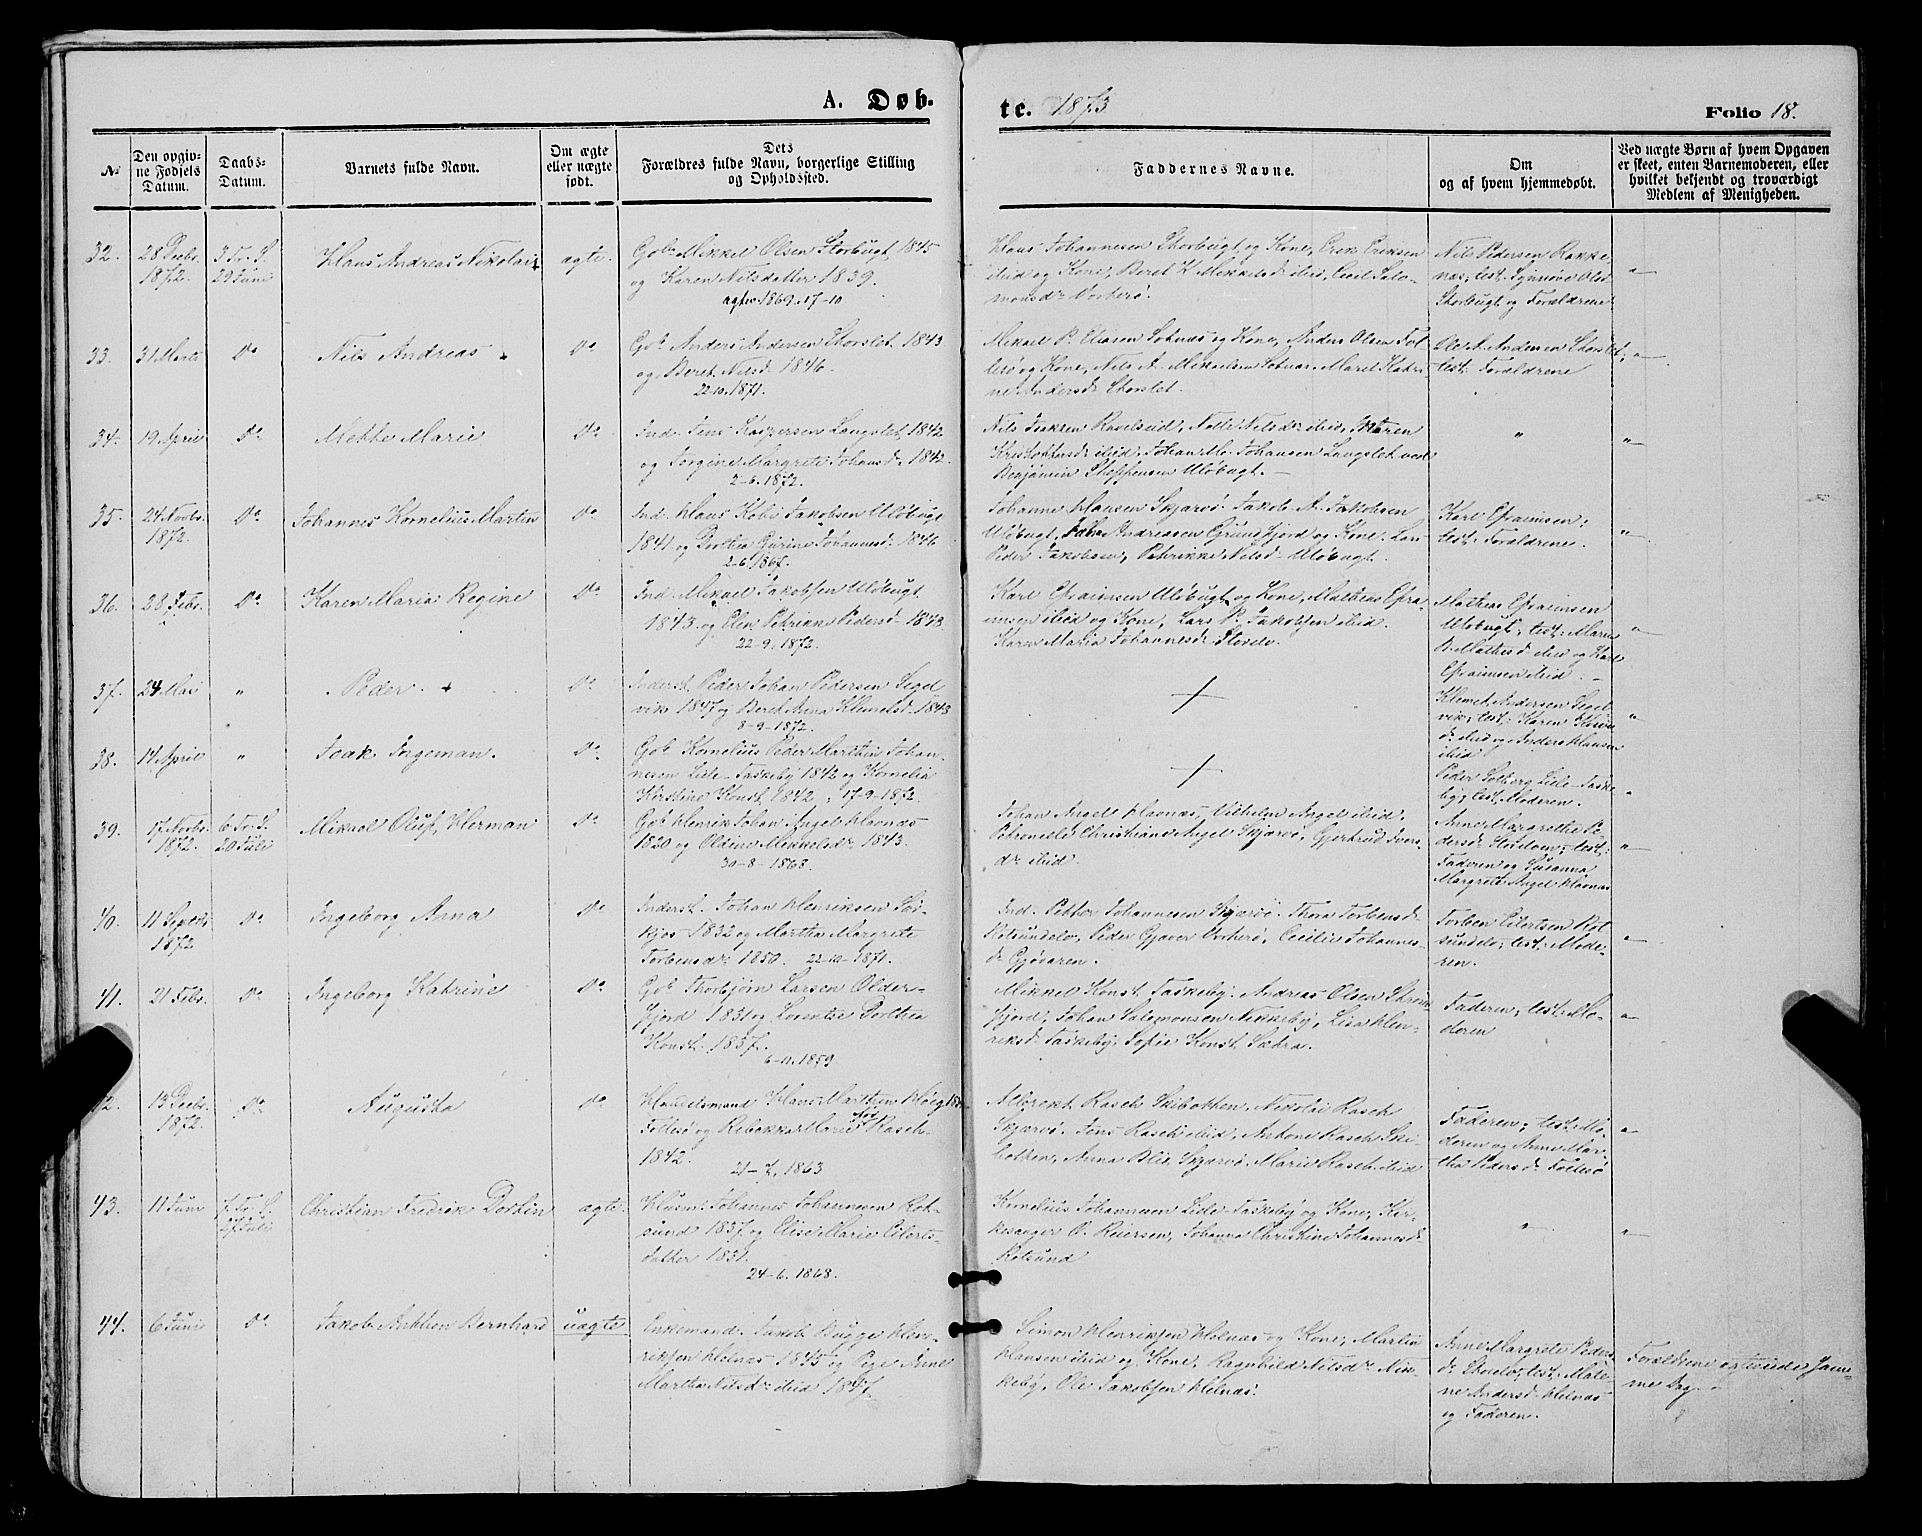 A. Døb-
te. 1873
Folio 18.
№
Den opgiv-
ne Fødsels
Datum.
Daabs-
Datum.
Barnets fulde Navn.
Om ægte
eller uægte
født.
Dets
Forældres fulde Navn, borgerlige Stilling
og Opholdssted.
Faddernes Navne.
Om
og af hvem hjemmedøbt.
Ved uægte Børn af hvem Opgaven
er skeet, enten Barnemoderen, eller
hvilket bekjendt og troværdigt
Medlem af Menigheden.
32.
28 Decbr.
1872.
3 Tr. S.
29 Juni
Hans Andreas Nikolai
ægte.
Gbr. Mikkel Olsen Storbugt 1845
og Karen Nilsdatter 1839.
agtev. 1869. 17-10
Hans Johannesen Storbugt og Kone, Erik Eriksen
ibid og Kone, Beret K. Mikkelsdr ibid,
monsdr Vorterø.
Nils Pedersen Rakke-
næs; test. Synnøve Olsd.
Storbugt og Forældrene
"
33.
31 Marts
Do
Nils Andreas
Do
Gbr. Anders Andersen Storslet 1843
og Beret Nilsd. 1846.
22-10. 1871.
Mikael P. Eliasen Sotnæs og Kone, Anders Olsen Fol-
lesø og Kone, Nils A. Mikkelsen Sotnæs, Maret Katri-
ne Andersdr Storslet.
Ole A. Andersen Storslet;
test: Forældrene
"
34.
19 April
Do
Mette Marie
Do
Ind. Jens Kaspersen Langslet 1842
og Jorgine Margrete Johansd. 1842.
2-6. 1872.
Nils Isaksen Ravelseid, Nille Nilsdr ibid, Karen
Kristoffersdr ibid, Johan M. Johansen Langslet ved
Benjamin Steffensen Uløbugt.
"
"
35.
24 Novbr.
1872.
Do
Johannes Kornelius Martin
Do
Ind. Hans Kobi Jakobsen Uløbugt
1841 og Dorthea Gurine Johannesd. 1846
2-6. 1867.
Johanne Hansen Skjærvø. Jakob A. Jakobsen
Uløbugt, Andreassen Grunfjord og Kone. Lars
Peder Jakobsen, Petrikke Nilsd. Uløbugt.
Karl Efraimsen;
test: Forældrene.
"
36.
28 Febr.
Do
Karen Maria Regine
Do
Ind. Mikael Jakobsen Uløbugt
1843 og Elen Petriane Pedersd. 1843
22-9. 1872.
Karl Efraimsen Uløbugt og Kone, Mathias Efra-
imsen ibid og Kone, Lars P. Jakobsen ibid.
Karen Maria Johannesdr
Mathias Efraimsen
Uløbugt; test: Maren
B. Mathisd. ibid og Karl
Efraimsen ibid.
"
37.
24 Mai
"
Peder. +
Do
Inderst. Peder Johan Pedersen Segel
vik 1847 og Beret Anna Klemetsd. 1843
8-9. 1872.
+
Klemet Andersen Segel
vik; test: Karen
dr ibid og Anders Hansen
ibid
"
38.
14 April
"
Isak Ingeman.
Do
Gbr. Kornelius Peder Marthin Johan-
nesen Lille-Taskeby 1842 og Kornelia
Kirstine Konst. 1842. 17-9-1872
+
Peder Solberg Lille-Taske-
by; test. Moderen.
"
39.
17 Novbr.
1872.
6 Tr. S.
20 Juli
Mikael Oluf Herman
Do
Gbr. Henrik Johan Angel Havnæs
1820 og Oldine Mikkelsdr 1843.
30-8-1868.
Johan Angel Havnæs, Vilhelm Angel ibid,
Petronelle Christiane Angel Skjærvø, Gjertrud Ivers-
dr ibid.
Anne Margrethe Pe-
dersdr; test:
Faderen og Susanna
Margrete Angel Havnæs
"
40.
11 Septbr.
1872
Do
Ingeborg Anna
Do
Inderst. Johan Henriksen Sør-
kjos 1832 og Martha Margrete
Torbensdr 1850. 22-10-1871.
Ind. Petter Johannesen Skjærvø. Thora Torbensdr
Rotsundelv, Peder Gjæver Vorterø, Cecilie Johannes-
dr Gjøvaren.
Torben Eilertsen Rot-
sundelv; test. Mode-
ren.
"
41.
21 Febr.
Do
Ingeborg Katrine
Do
Gbr. Thorbjørn Larsen Older-
fjord 1831 og Lorentse Dorthea
Konst. 1837.
6-11. 1859.
Mikkel Konst Taskeby. Andreas Olsen
fjord, Johan Salomonsen Nikkeby, Lisa Hen-
riksdr Taskeby, Sofie Konst Sætra.
Faderen; test. Mo-
deren
"
42.
13 Decbr.
1872.
Do
Augusta
Do
Handelsmand Hans Marthin Høeg
Follesø og Rebekka Marie Rasch
1842.
21-7. 1863
Albrekt Rasch Skibotten, Nikolai Rasch
Skjærvø. Jens Rasch ibid, Antone Rasch Ski-
botten, Anna Blix Skjærvø. Marie Rasch ibid
Faderen; test. Mo-
deren og Anne Mar-
tha Pedersdr Follesø
"
43.
11 Juni
7. Tr. S.
27 Juli
Christian Fredrik
ægte.
Husm. Johannes Johannesen Rot-
sund 1837. og Elise Marie Eilerts-
datter 1831.
24-6. 1868.
Kornelius Johannesen Lille-Taskeby og Kone, Kir-
kesanger O. Reiersen, Johanna Christine Johannesdr
Rotsund
"
"
44.
6 Juni
Do
Jakob Anthon Bernhard
uægte
Enkemand. Jakob Bugge Hen-
riksen Helnæs 1845 og Pige Anne
Martha Nilsdr ibid 1847.
Simon Henriksen Helnæs og Kone, Martin
Hansen ibid og Kone, Ragnhild Nilsdr Nik-
keby, Ole Jakobsen Helnæs.
Anne Margrete Peders-
dr; test. Male-
ne Andersd. Helnæs
og Faderen.
Forældrene ægteviede sam-
me Dag.